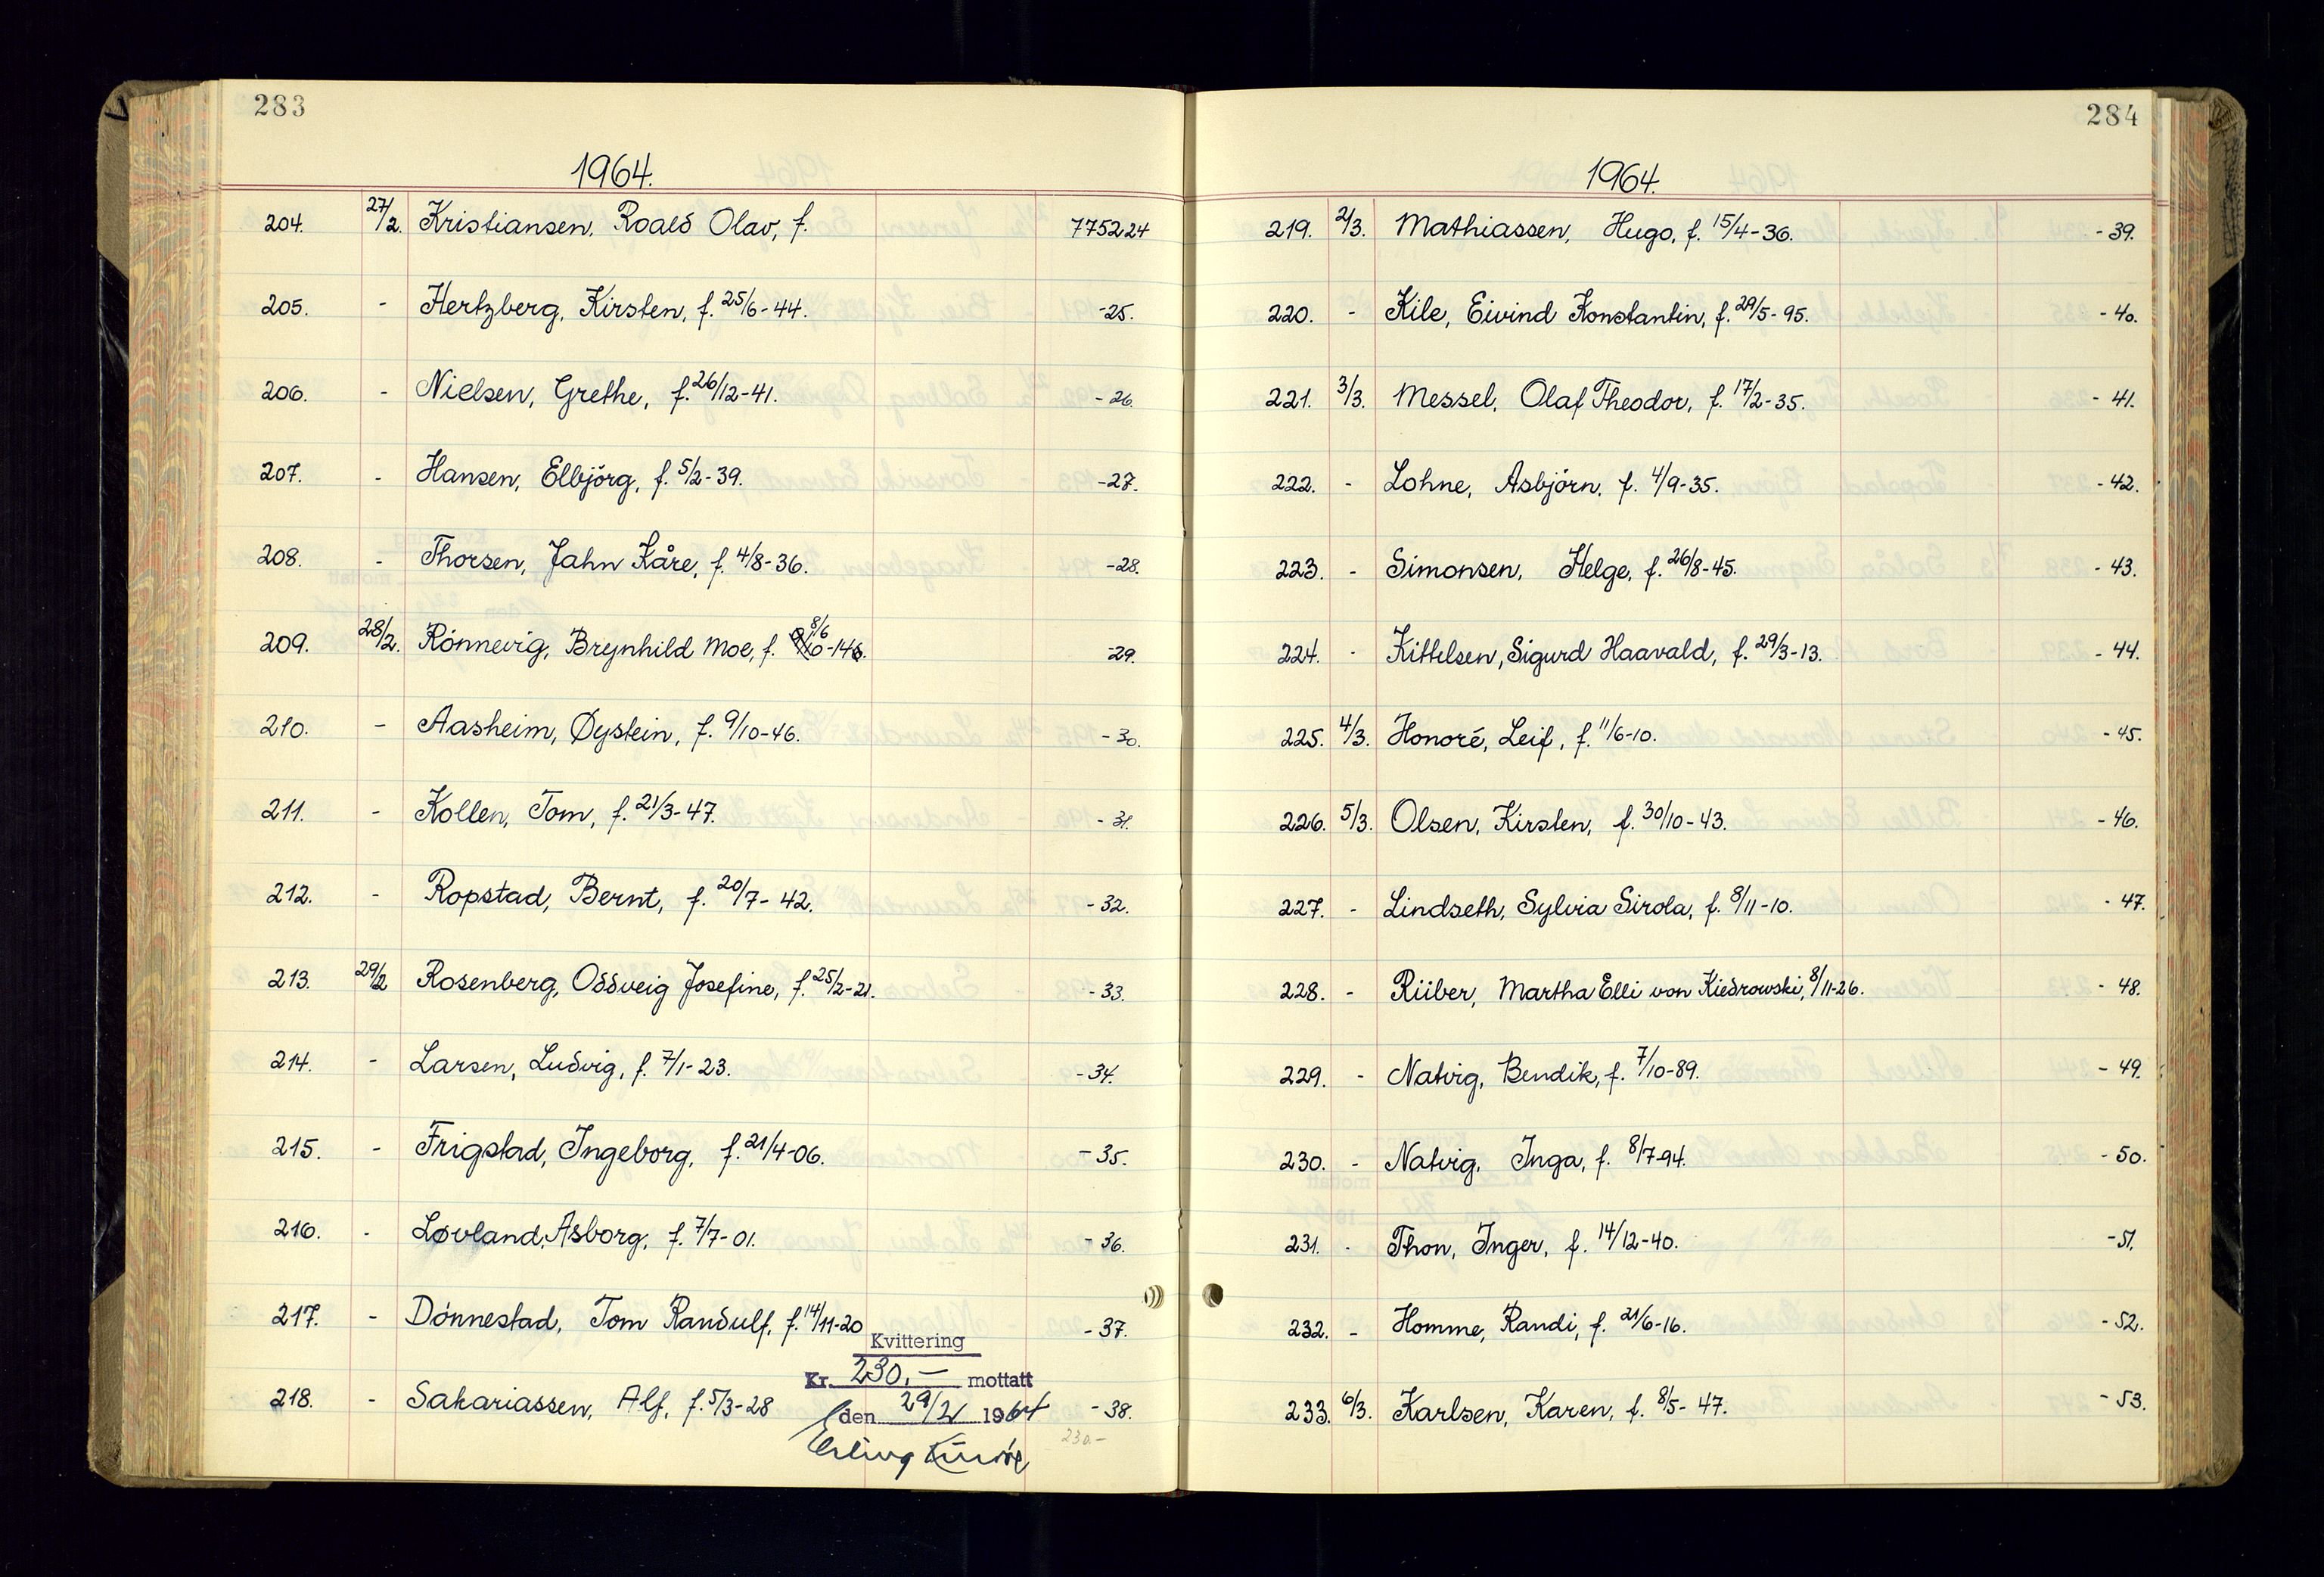 283
1964.
204. 27/2. Kristiansen, Roald Olav, f. 775224
205. - Hertzberg, Kirsten, f. 25/6-44. -25.
206. - Nielsen, Grethe, f. 26/12-41. -26.
207. - Hansen, Elbjörg, f. 5/2-39. -27.
208. - Thorsen, Jahn Kåre, f. 4/8-36. -28.
209. 28/2. Rönnevig, Brynhild Moe, f. 8/6-14. -29.
210. - Aasheim, Øystein, f. 9/10-46. -30.
211. - Kollen, Tom, f. 21/3-47. -31.
212. - Ropstad, Bernt, f. 20/7-42. -32.
213. 29/2 Rosenberg, Oddveig Josefine, f. 25/2-21. -33.
214. - Larsen, Ludvig, f. 7/1-23. -34.
215. - Frigstad, Ingeborg, f. 21/4-06. -35.
216. - Løvland, Asborg, f. 7/7-01. -36.
217. - Dönnestad, Tom Randulf, f. 14/11-20 -37.
Kvittering
Kr. 230,- mottatt
218. - Sakariassen, Alf, f. 5/3-28 -38.
den 29/2 1964
230.-
Erling
284
1964.
219. 2/3. Mathiassen, Hugo, f. 15/4-36. -39.
220. - Kile, Eivind Konstantin, f. 29/5-95. -40.
221. 3/3. Messel, Olaf Theodor, f. 17/2-35. -41.
222. - Lohne, Asbjörn, f. 4/9-35. -42.
223. - Simonsen, Helge, f. 26/8-45. -43.
224. - Kittelsen, Sigurd Haavald, f. 29/3-13. -44.
225. 4/3. Honoré, Leif, f. 11/6-10. -45.
226. 5/3. Olsen, Kirsten, f. 30/10-43. -46.
227. - Lindseth, Sylvia Sirola, f. 8/11-10. -47.
228. - Rüber, Martha Elli von Kiedrowski, 8/11-26. -48.
229. - Natvig, Bendik, f. 7/10-89. -49.
230. - Natvig, Inga, f. 8/7-94. -50.
231. - Thon, Inger, f. 14/12-40. -51.
232. - Homme, Randi, f. 21/6-16. -52.
233. 6/3. Karlsen, Karen, f. 8/5-47. -53.